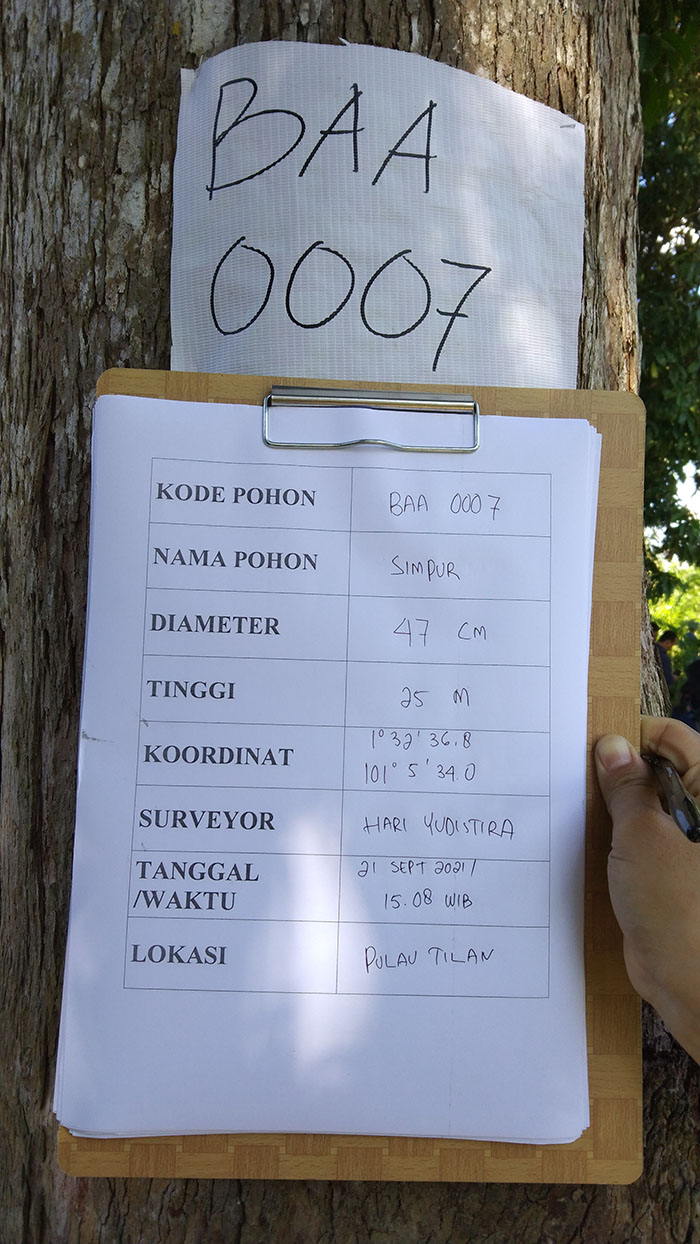 BAA
0007
KODE POHON BAA 0007
NAMA POHON SIMPUR
DIAMETER 47 CM
TINGGI 25 M
KOORDINAT 1° 32' 36.8
101° 5' 34.0
SURVEYOR HARI YUDISTIRA
TANGGAL 21 SEPT 2021/
/WAKTU 15.08 WIB
LOKASI PULAU TILAN